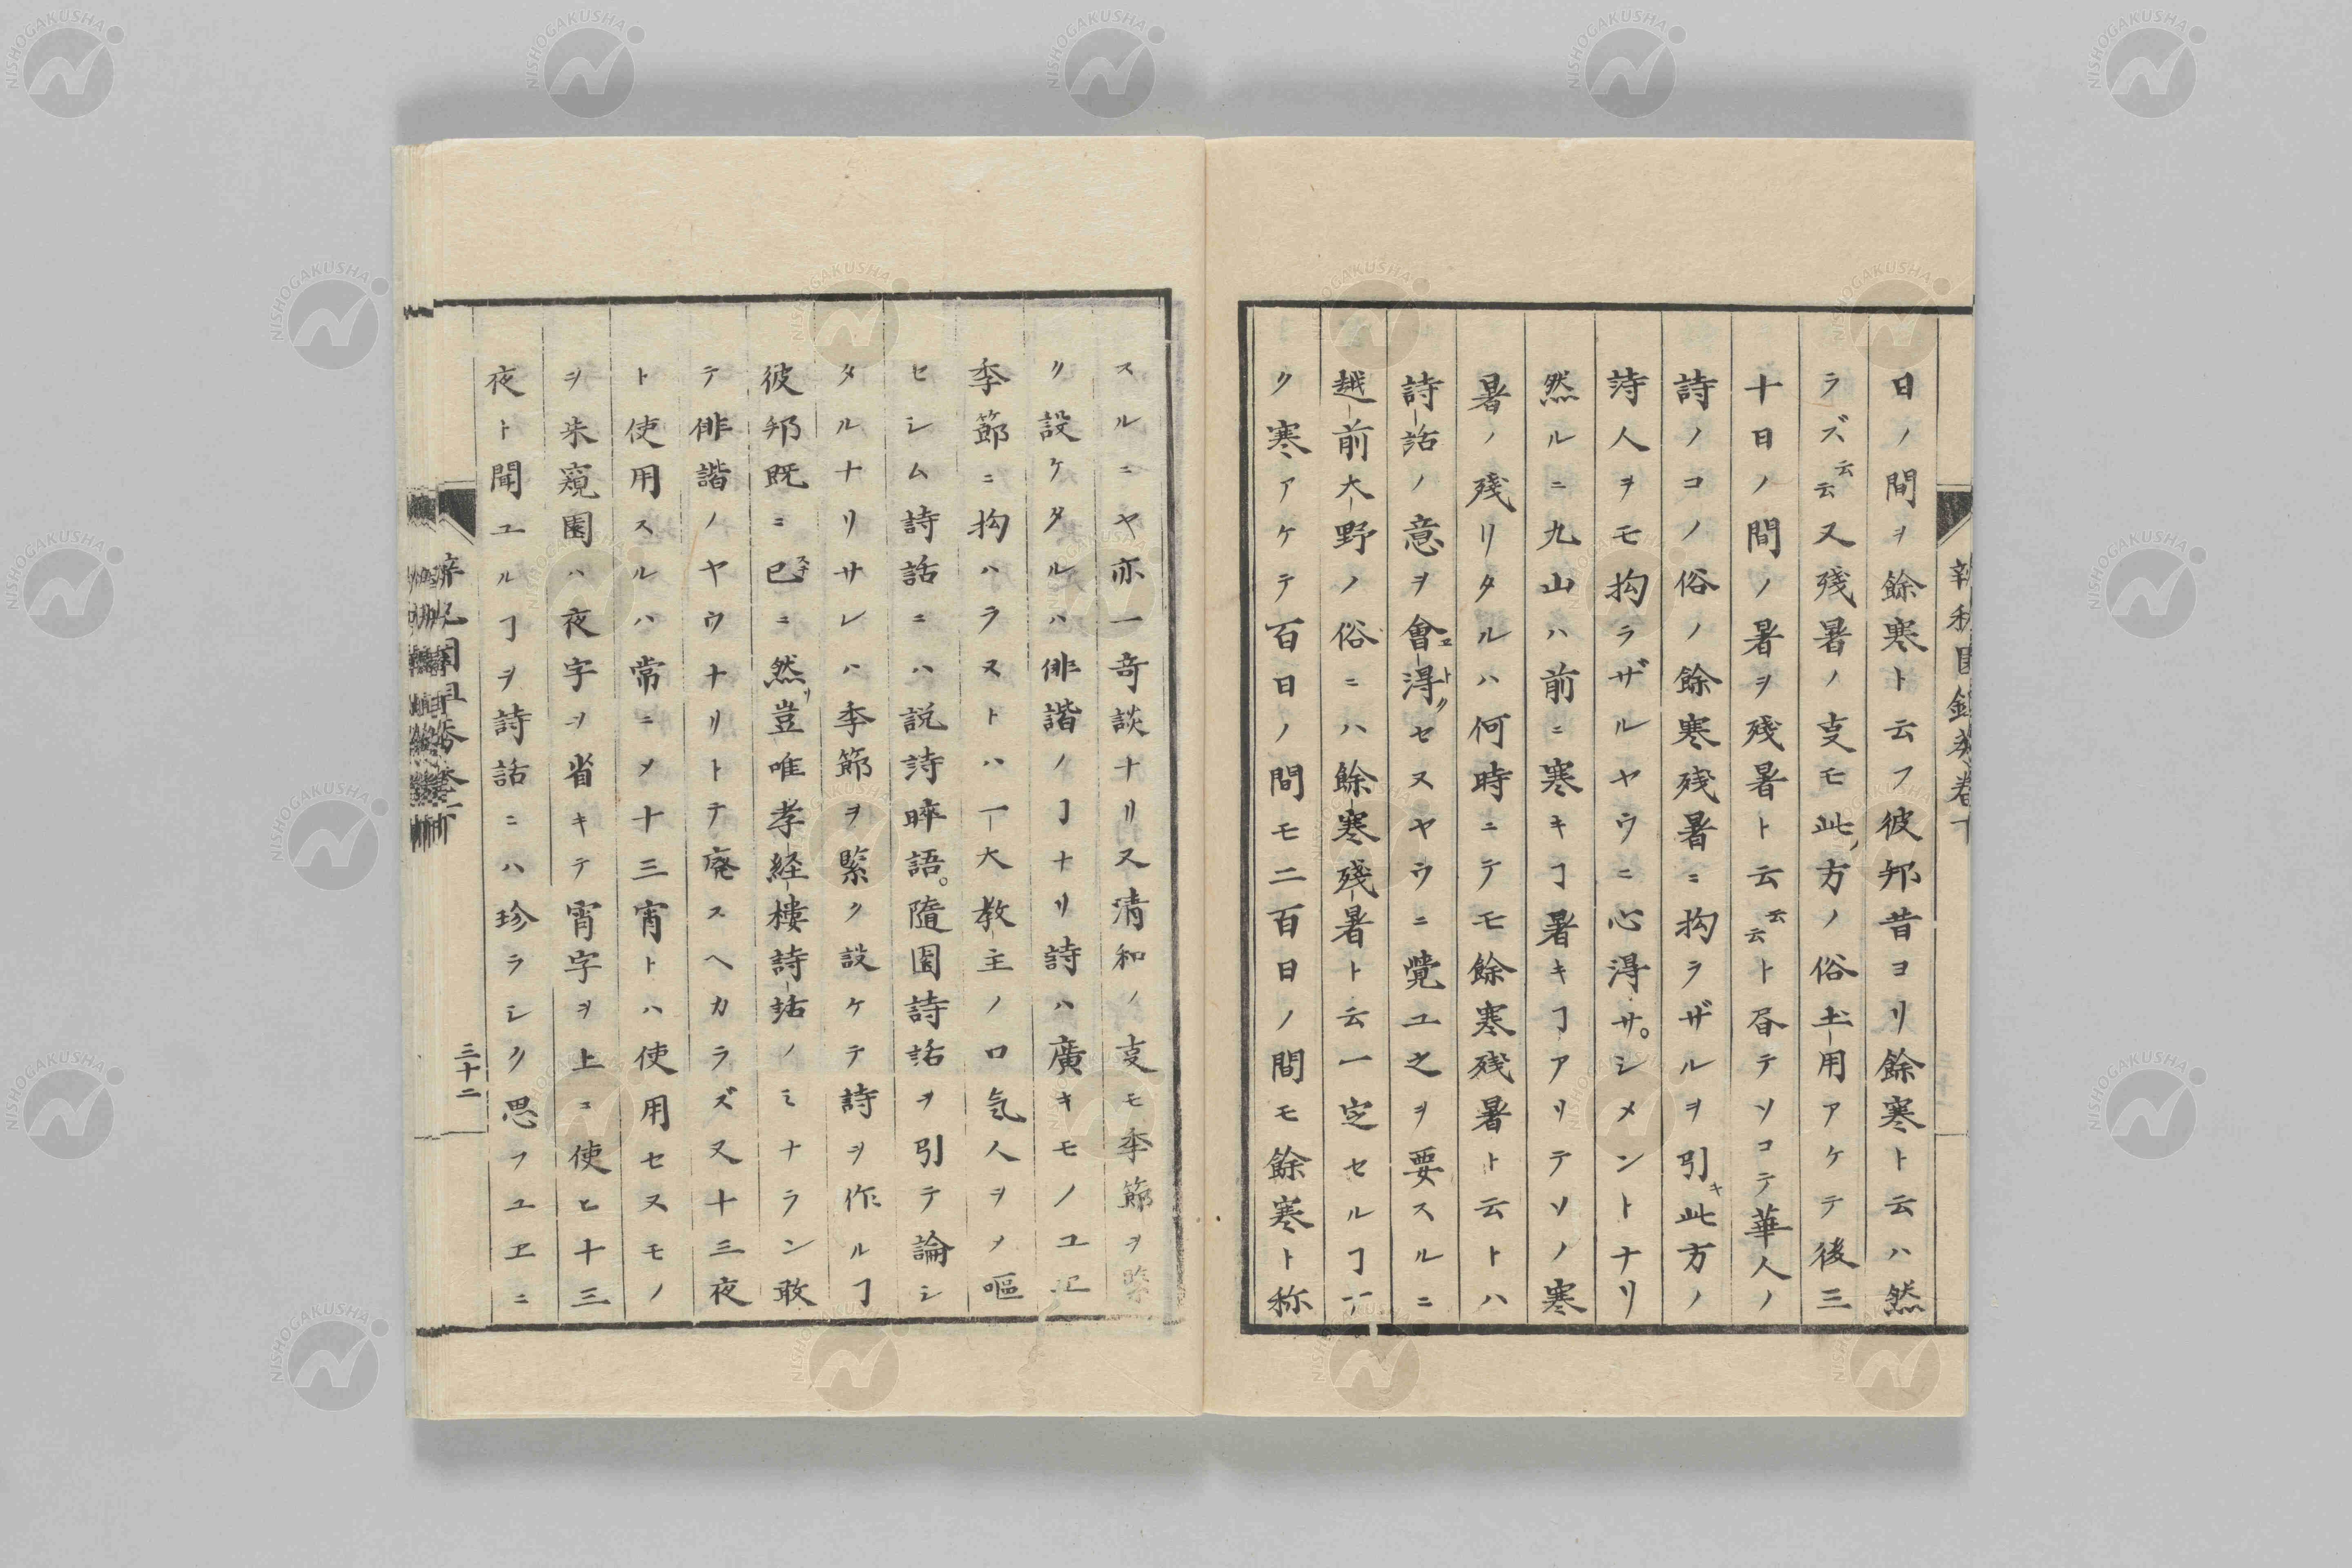 日ノ間ヲ餘寒ト云フ彼邦昔ヨリ餘寒ト云ハ然
ラズ云云又残暑ノ叓モ此方ノ俗土用アケテ後三
十日ノ間ノ暑ヲ残暑ト云云云ト昏テソコテ華人ノ
詩ノコノ俗ノ餘寒残暑ニ拘ラザルヲ引キ此方ノ
詩人ヲモ拘ラザルヤウニ心淂サシメントナリ
然ルニ九山ハ前ニ寒キヿ暑キヿアリテソノ寒
暑ノ残リタルハ何時ニテモ餘寒残暑ト云トハ
詩話ノ意ヲ會淂セスヤウニ覺ユ之ヲ要スルニ
越前大野ノ俗ニハ餘寒残暑ト云一定セルヿナ
ク寒アケテ百日ノ間モ二百日ノ間モ餘寒ト称
スルニヤ亦一奇談ナリ又清和ノ叓モ季節ヲ緊
ク設ケタルハ俳諧ノヿナリ詩ハ廣キモノユヱ
季節ニ拘ハラヌトハ一大教主ノ口気人ヲメ嘔
セシム詩話ニハ説詩晬語隨園詩話ヲ引テ論シ
タルナリサレハ季節ヲ緊ク設ケテ詩ヲ作ルヿ
彼邦既ニ已ニ然リ豈唯孝経樓詩話ノミナラン敢
テ俳諧ノヤウナリトテ廃スヘカラズ又十三夜
ト使用スルハ常ニメ十三宵トハ使用セヌモノ
ヲ朱窺園ハ夜字ヲ省キテ宵字ヲ上ニ使ヒ十三
夜ト聞ユルヿヲ詩話ニハ珍ラシク思フユエニ
三十二
NISHOGAKUSHA